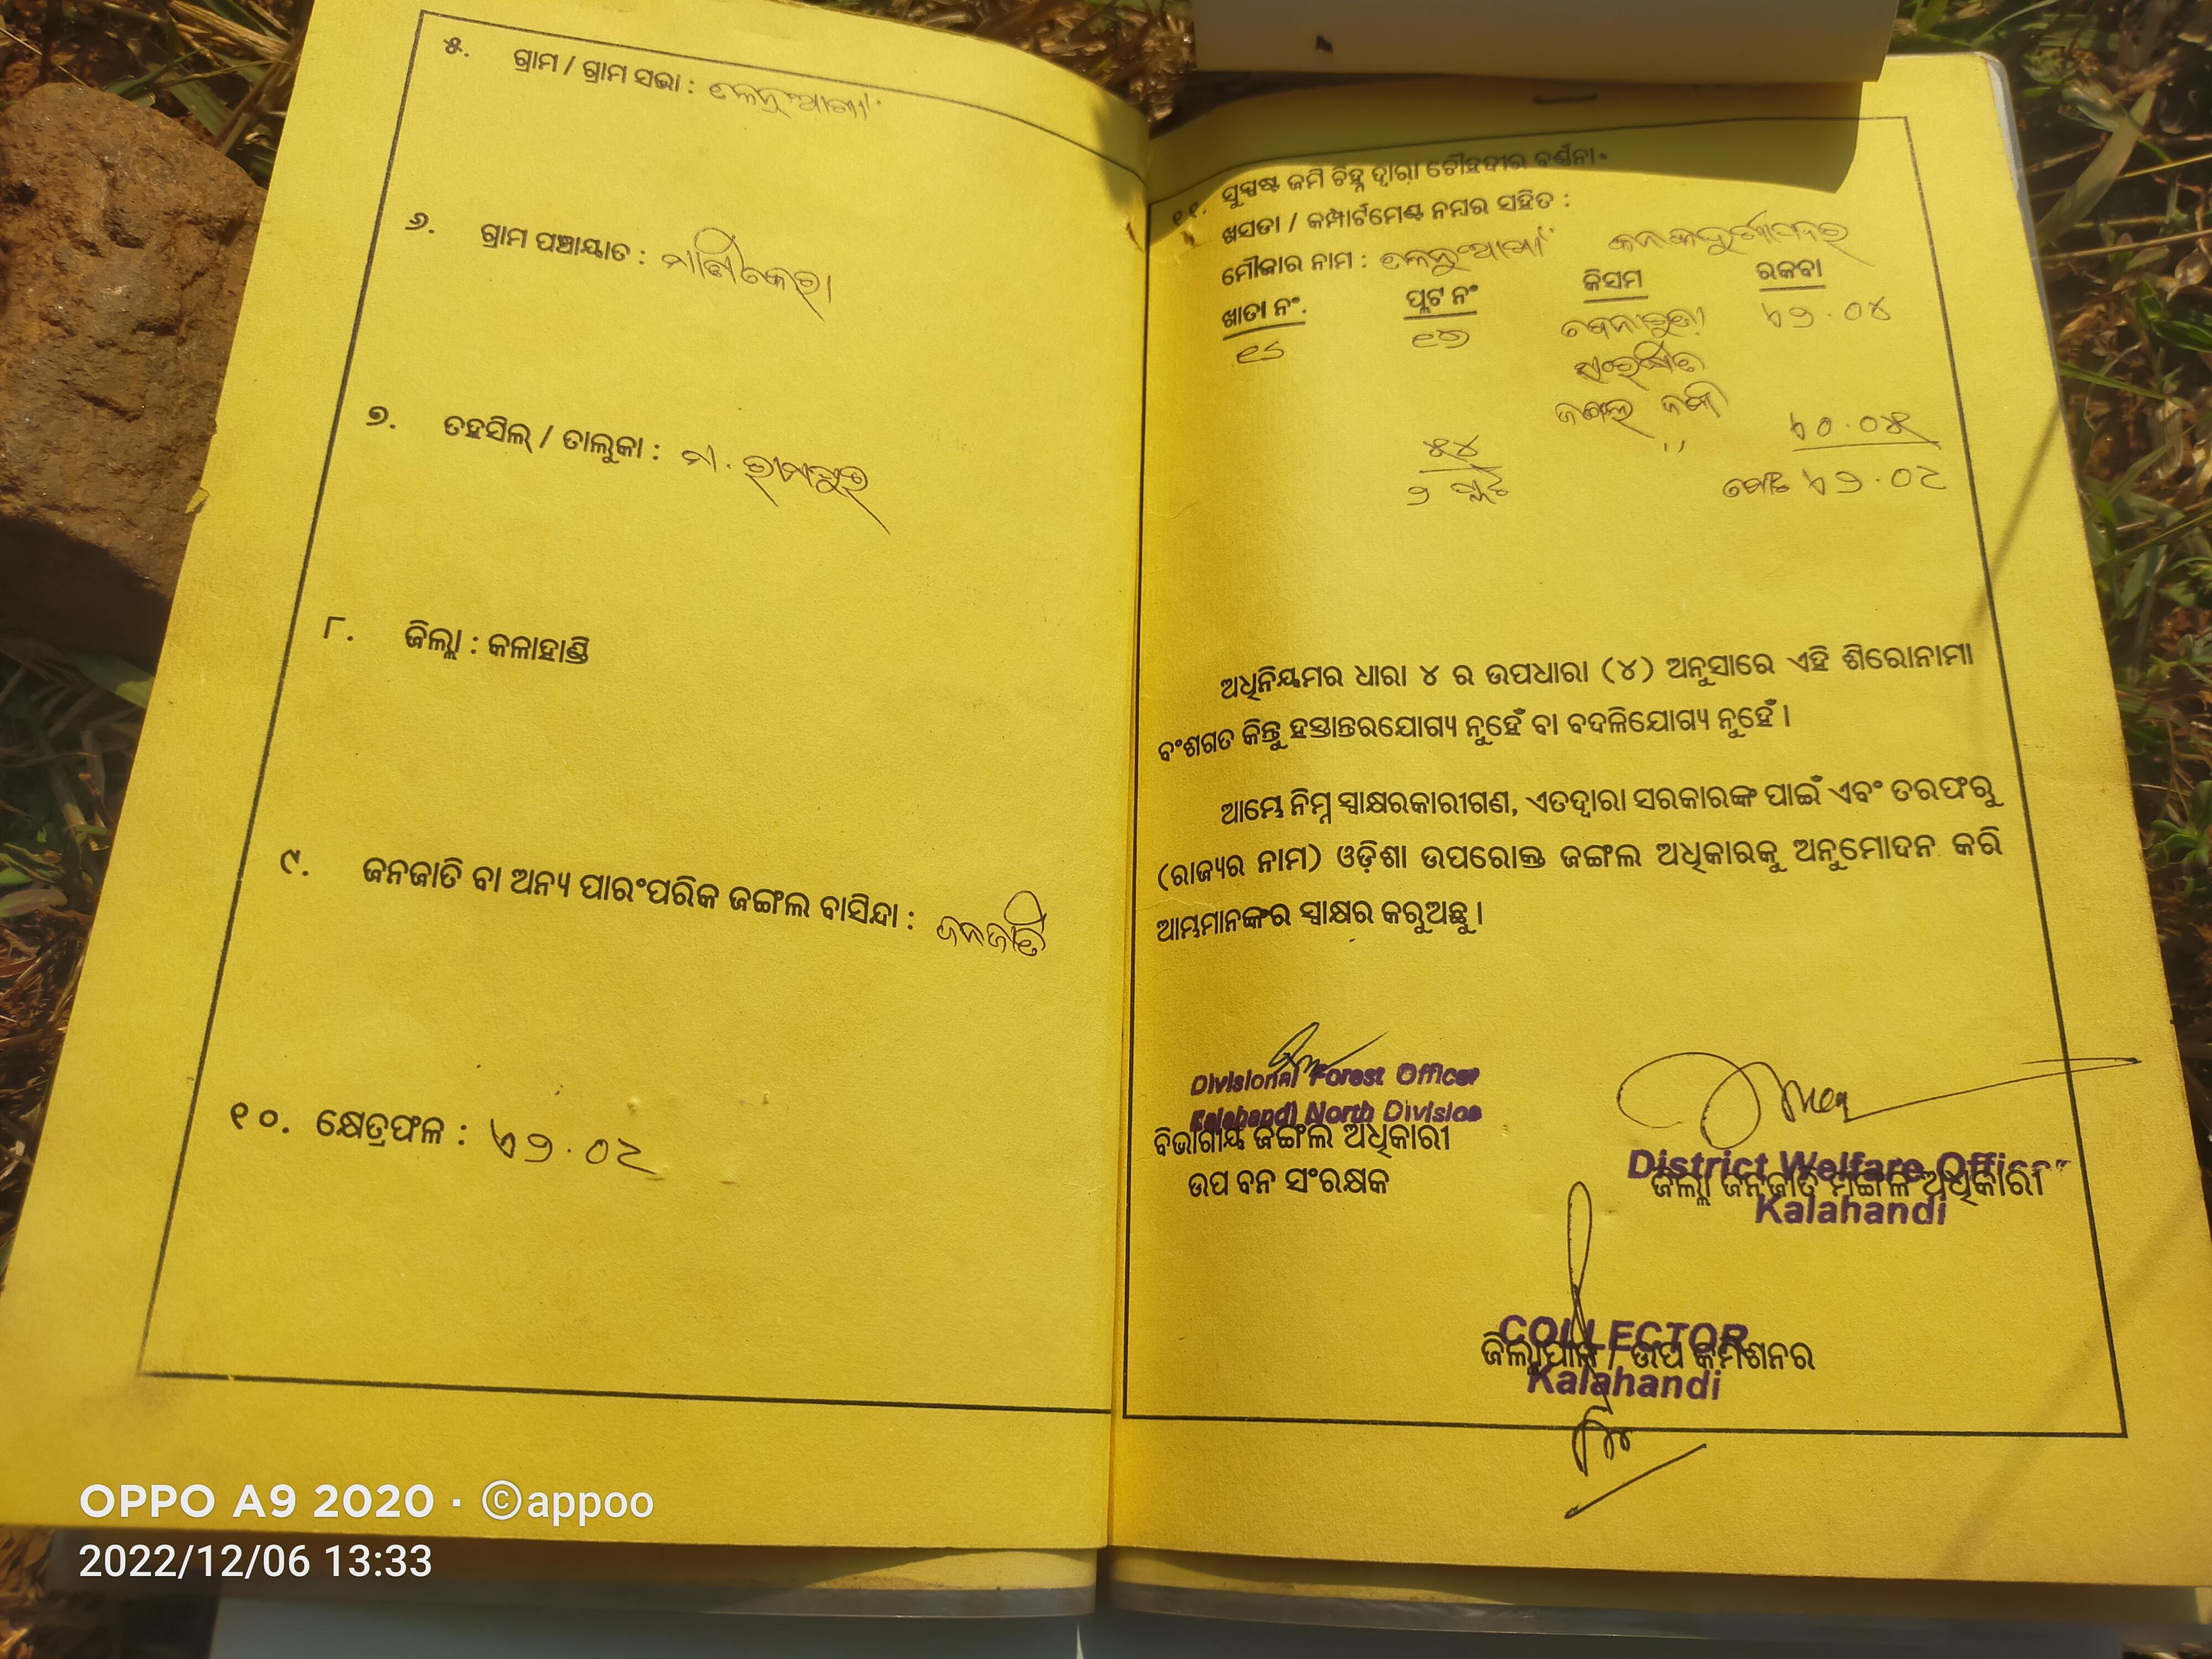 ୫. ଗ୍ରାମ / ଗ୍ରାମ ସଭା :
୬. ଗ୍ରାମ ପଞ୍ଚାୟାତ :
୭. ତହସିଲ୍ / ତାଲୁକା : ମ. ରାମପୁର
୮. ଜିଲ୍ଲା : କଳାହାଣ୍ଡି
୯. ଜନଜାତି ବା ଅନ୍ୟ ପାରଂପରିକ ଜଙ୍ଗଲ ବାସିନ୍ଦା : ଜନଜାତି
୧୦. କ୍ଷେତ୍ରଫଳ :
୧୧. ସୁସ୍ପଷ୍ଟ ଜମି ଚିହ୍ନ ଦ୍ୱାରା ଚୌହଦୀର ବର୍ଣ୍ଣନା
ଖସଡା / କମ୍ପାର୍ଟମେଣ୍ଟ ନମ୍ବର ସହିତ :
ମୌଜାର ନାମ :
ଖାତା ନଂ. ପ୍ଲଟ ନଂ କିସମ ରକବା
ସଂରକ୍ଷିତ
ଜଙ୍ଗଲ ଜମି
୫୪
୨ ପ୍ଲଟ ମୋଟ
ଅଧିନିୟମର ଧାରା ୪ ର ଉପଧାରା (୪) ଅନୁସାରେ ଏହି ଶିରୋନାମା
ବଂଶଗତ କିନ୍ତୁ ହସ୍ତାନ୍ତରଯୋଗ୍ୟ ନୁହେଁ ବା ବଦଳିଯୋଗ୍ୟ ନୁହେଁ ।
ଆମ୍ଭେ ନିମ୍ନ ସ୍ୱାକ୍ଷରକାରୀଗଣ, ଏତଦ୍ୱାରା ସରକାରଙ୍କ ପାଇଁ ଏବଂ ତରଫରୁ
(ରାଜ୍ୟର ନାମ) ଓଡ଼ିଶା ଉପରୋକ୍ତ ଜଙ୍ଗଲ ଅଧିକାରକୁ ଅନୁମୋଦନ କରି
ଆମ୍ଭମାନଙ୍କର ସ୍ୱାକ୍ଷର କରୁଅଛୁ ।
Divisional Forest Officer
Kalahandi North Division
ବିଭାଗୀୟ ଜଙ୍ଗଲ ଅଧିକାରୀ
ଉପ ବନ ସଂରକ୍ଷକ
District Welfare Officer
ଜିଲ୍ଲା ଜନଜାତି ମଙ୍ଗଳ ଅଧିକାରୀ
Kalahandi
COLLECTOR
ଜିଲ୍ଲାପାଳ / ଉପ କମିଶନର
Kalahandi
OPPO A9 2020 · ©appoo
2022/12/06 13:33